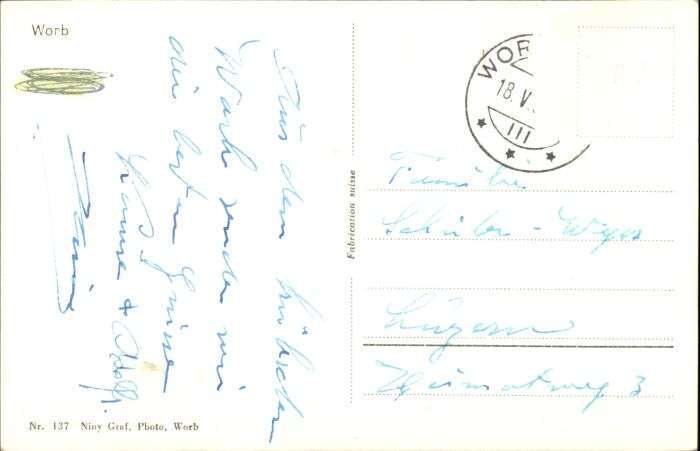 Worb
Aus dem hübschen
Worb senden wir
die besten Grüsse
Hanni & Adolf.
WOR
18. V.
III
Fabrication suisse
Familie
Schüler-Wyss
Luzern
Heimatweg 3
Nr. 137 Niny Graf, Photo, Worb